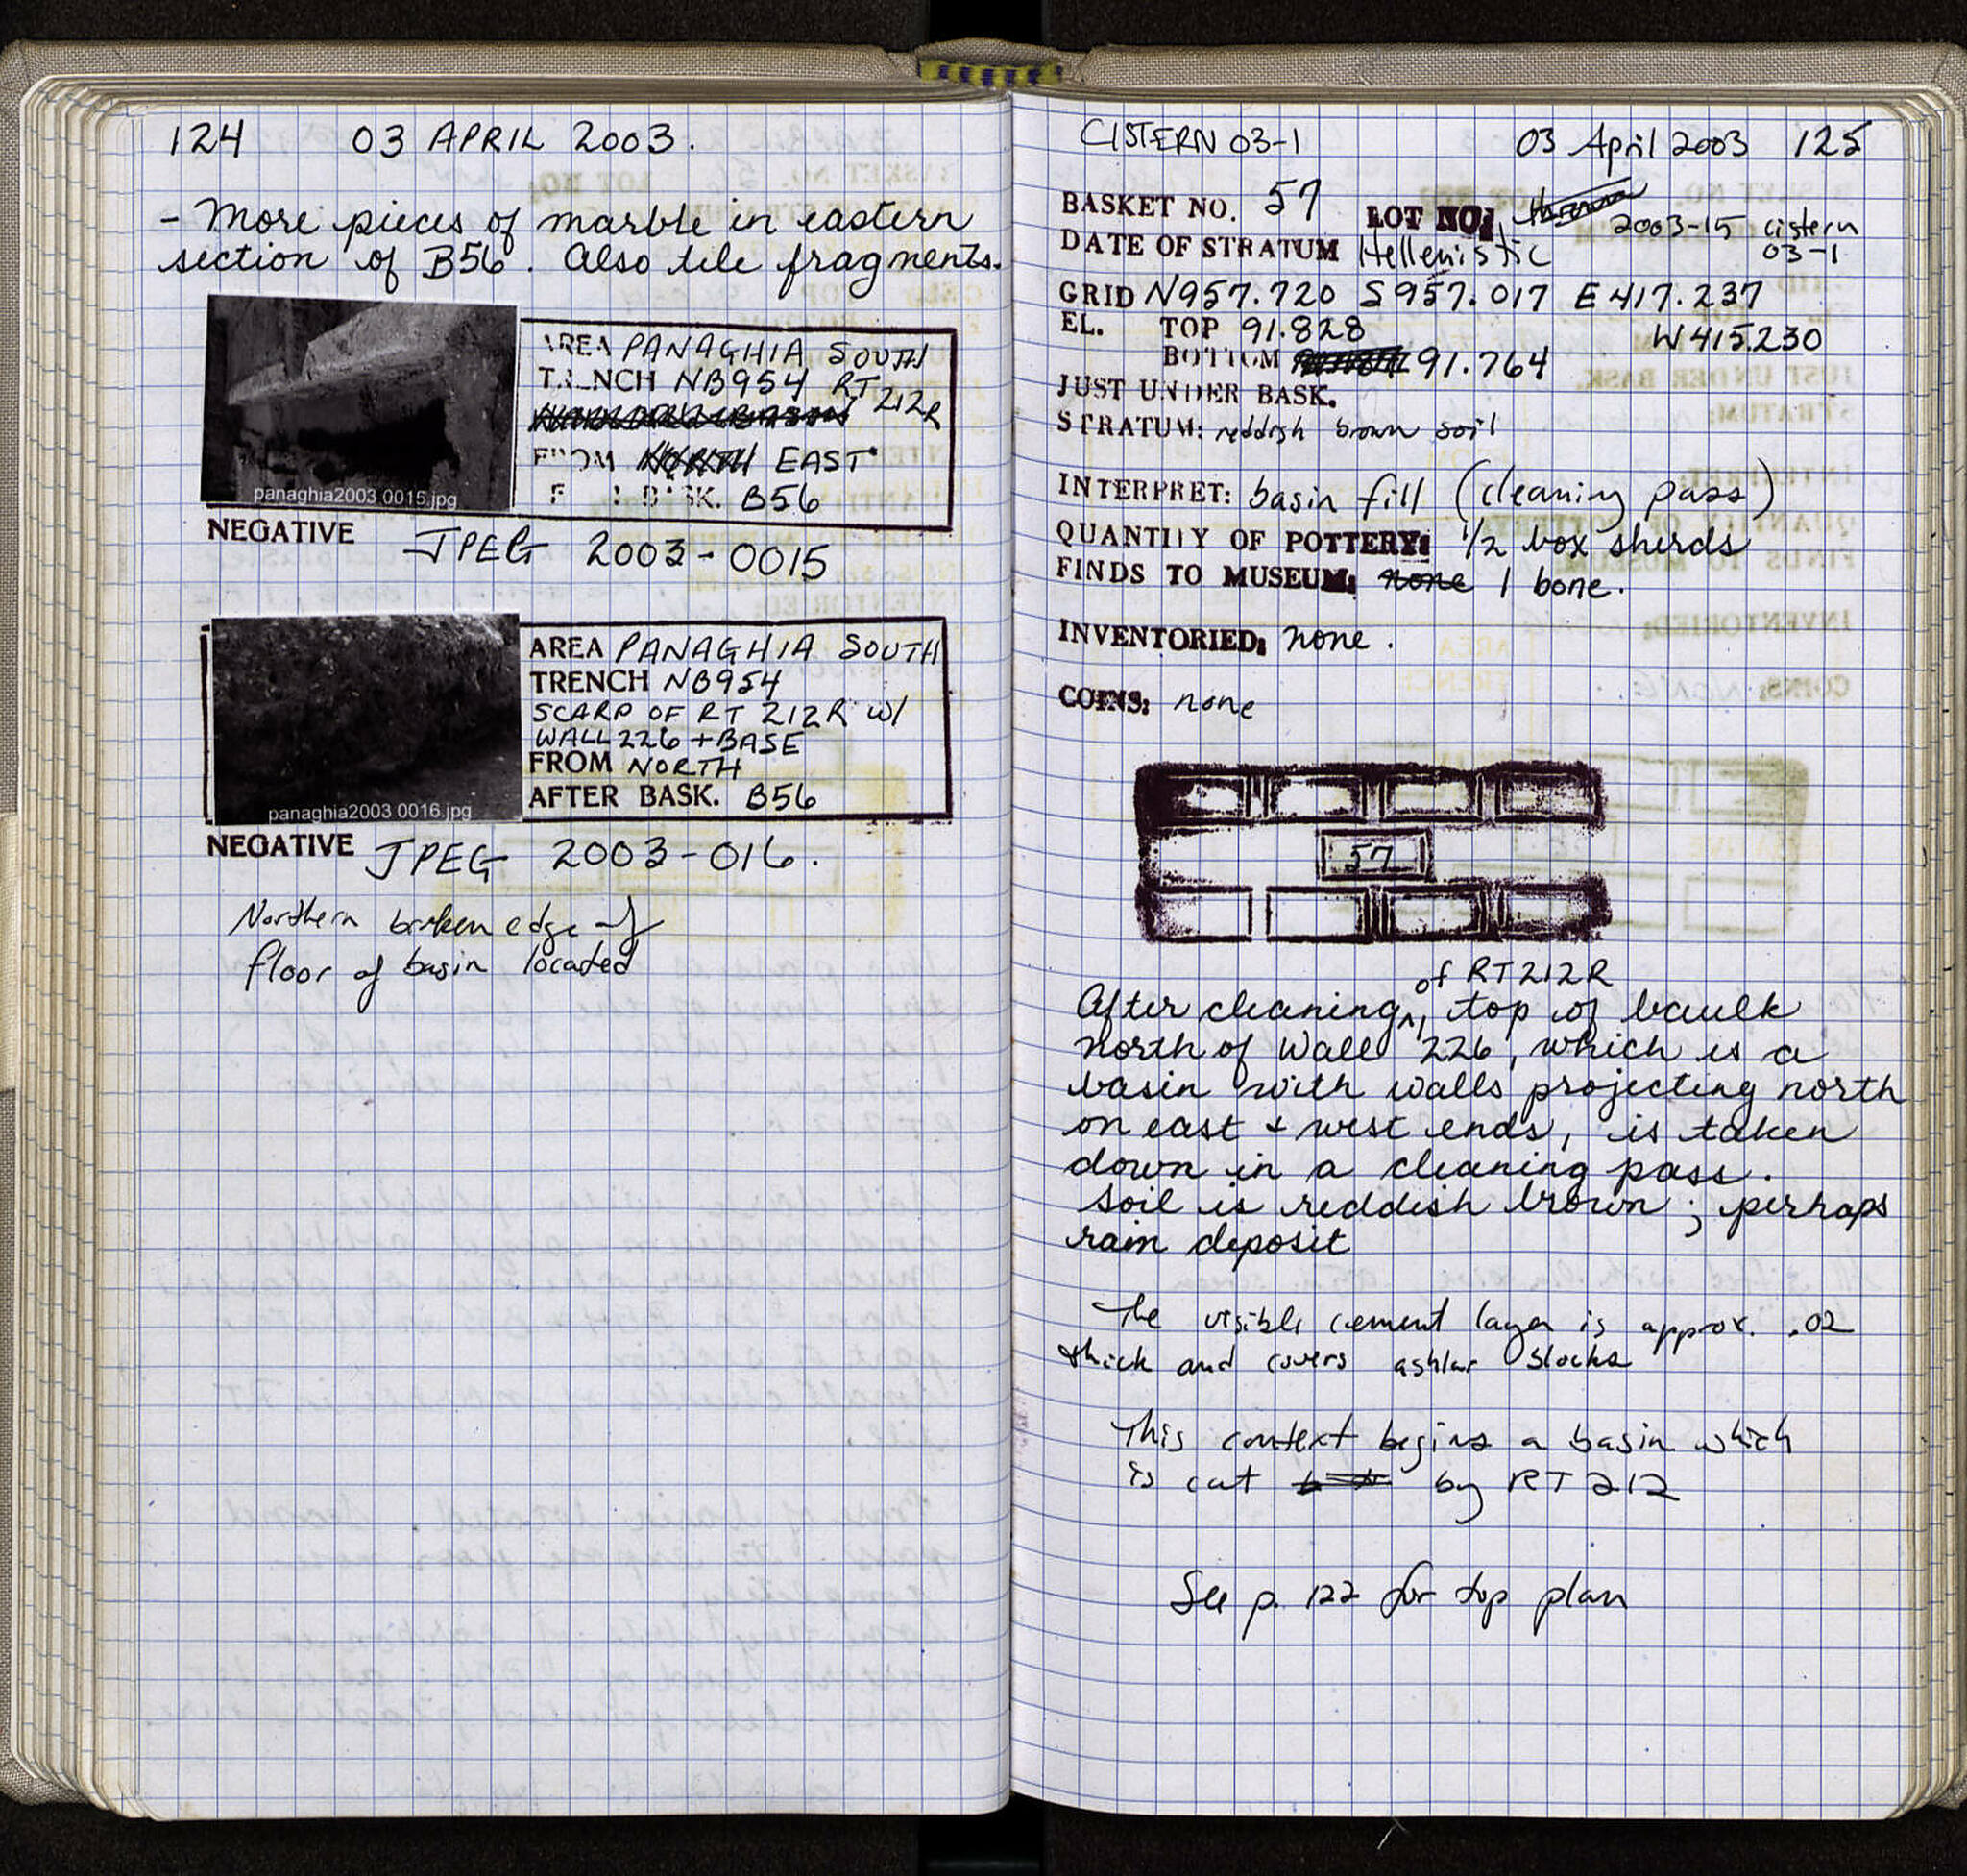 124 03 APRIL 2003.
- More pieces of marble in eastern
section of B56. Also tile fragments.
panaghia2003 0015.jpg
AREA PANAGHIA SOUTH
TRENCH NB954 RT
212R
FROM NORTH EAST
BASK. B56
NEGATIVE JPEG 2003-0015
panaghia2003 0016.jpg
AREA PANAGHIA SOUTH
TRENCH NB954
SCARP OF RT 212R W/
WALL 226 + BASE
FROM NORTH
AFTER BASK. B56
NEGATIVE JPEG 2003-016.
Northern broken edge of
floor of basin located
CISTERN 03-1 03 April 2003 125
BASKET NO. 57 LOT NO: 2003-15 cistern
03-1
DATE OF STRATUM Hellenistic
GRID N957.720 S957.017 E417.237
W415.230
EL. TOP 91.828
BOTTOM 91.764
JUST UNDER BASK.
STRATUM: reddish brown soil
INTERPRET: basin fill (cleaning pass)
QUANTITY OF POTTERY: 1/2 box sherds
FINDS TO MUSEUM: none 1 bone.
INVENTORIED: none.
COINS: none
57
of RT212R
After cleaning ^, top of baulk
north of Wall 226, which is a
basin with walls projecting north
on east + west ends, is taken
down in a cleaning pass.
Soil is reddish brown; perhaps
rain deposit
The visible cement layer is approx. .02
thick and covers ashlar blocks
This context begins a basin which
is cut by RT 212
See p. 122 for top plan